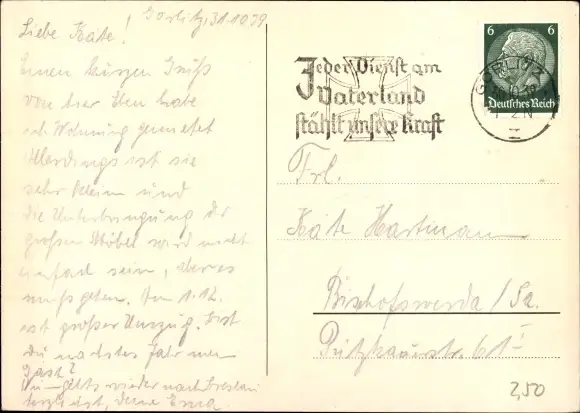 Görlitz, 31.10.39
Liebe Käte!
Einen kurzen Gruß
von hier. Eben habe
ich Wohnung gemietet
Allerdings ist sie
sehr klein und
die Unterbringung der
großen Möbel wird nicht
einfach sein, aber es
muß gehen. Am 1.12.
ist großer Umzug. Bist
du nächstes Jahr mein
Gast?
geht's wieder nach
herzlichst, deine Erna.
Jeder Dienst am
Vaterland
stählt unsere Kraft
6 6
Deutsches Reich
GÖRLITZ
Frl.
Käte Hartmann
Bischofswerda / Sa.
61 I
2,50